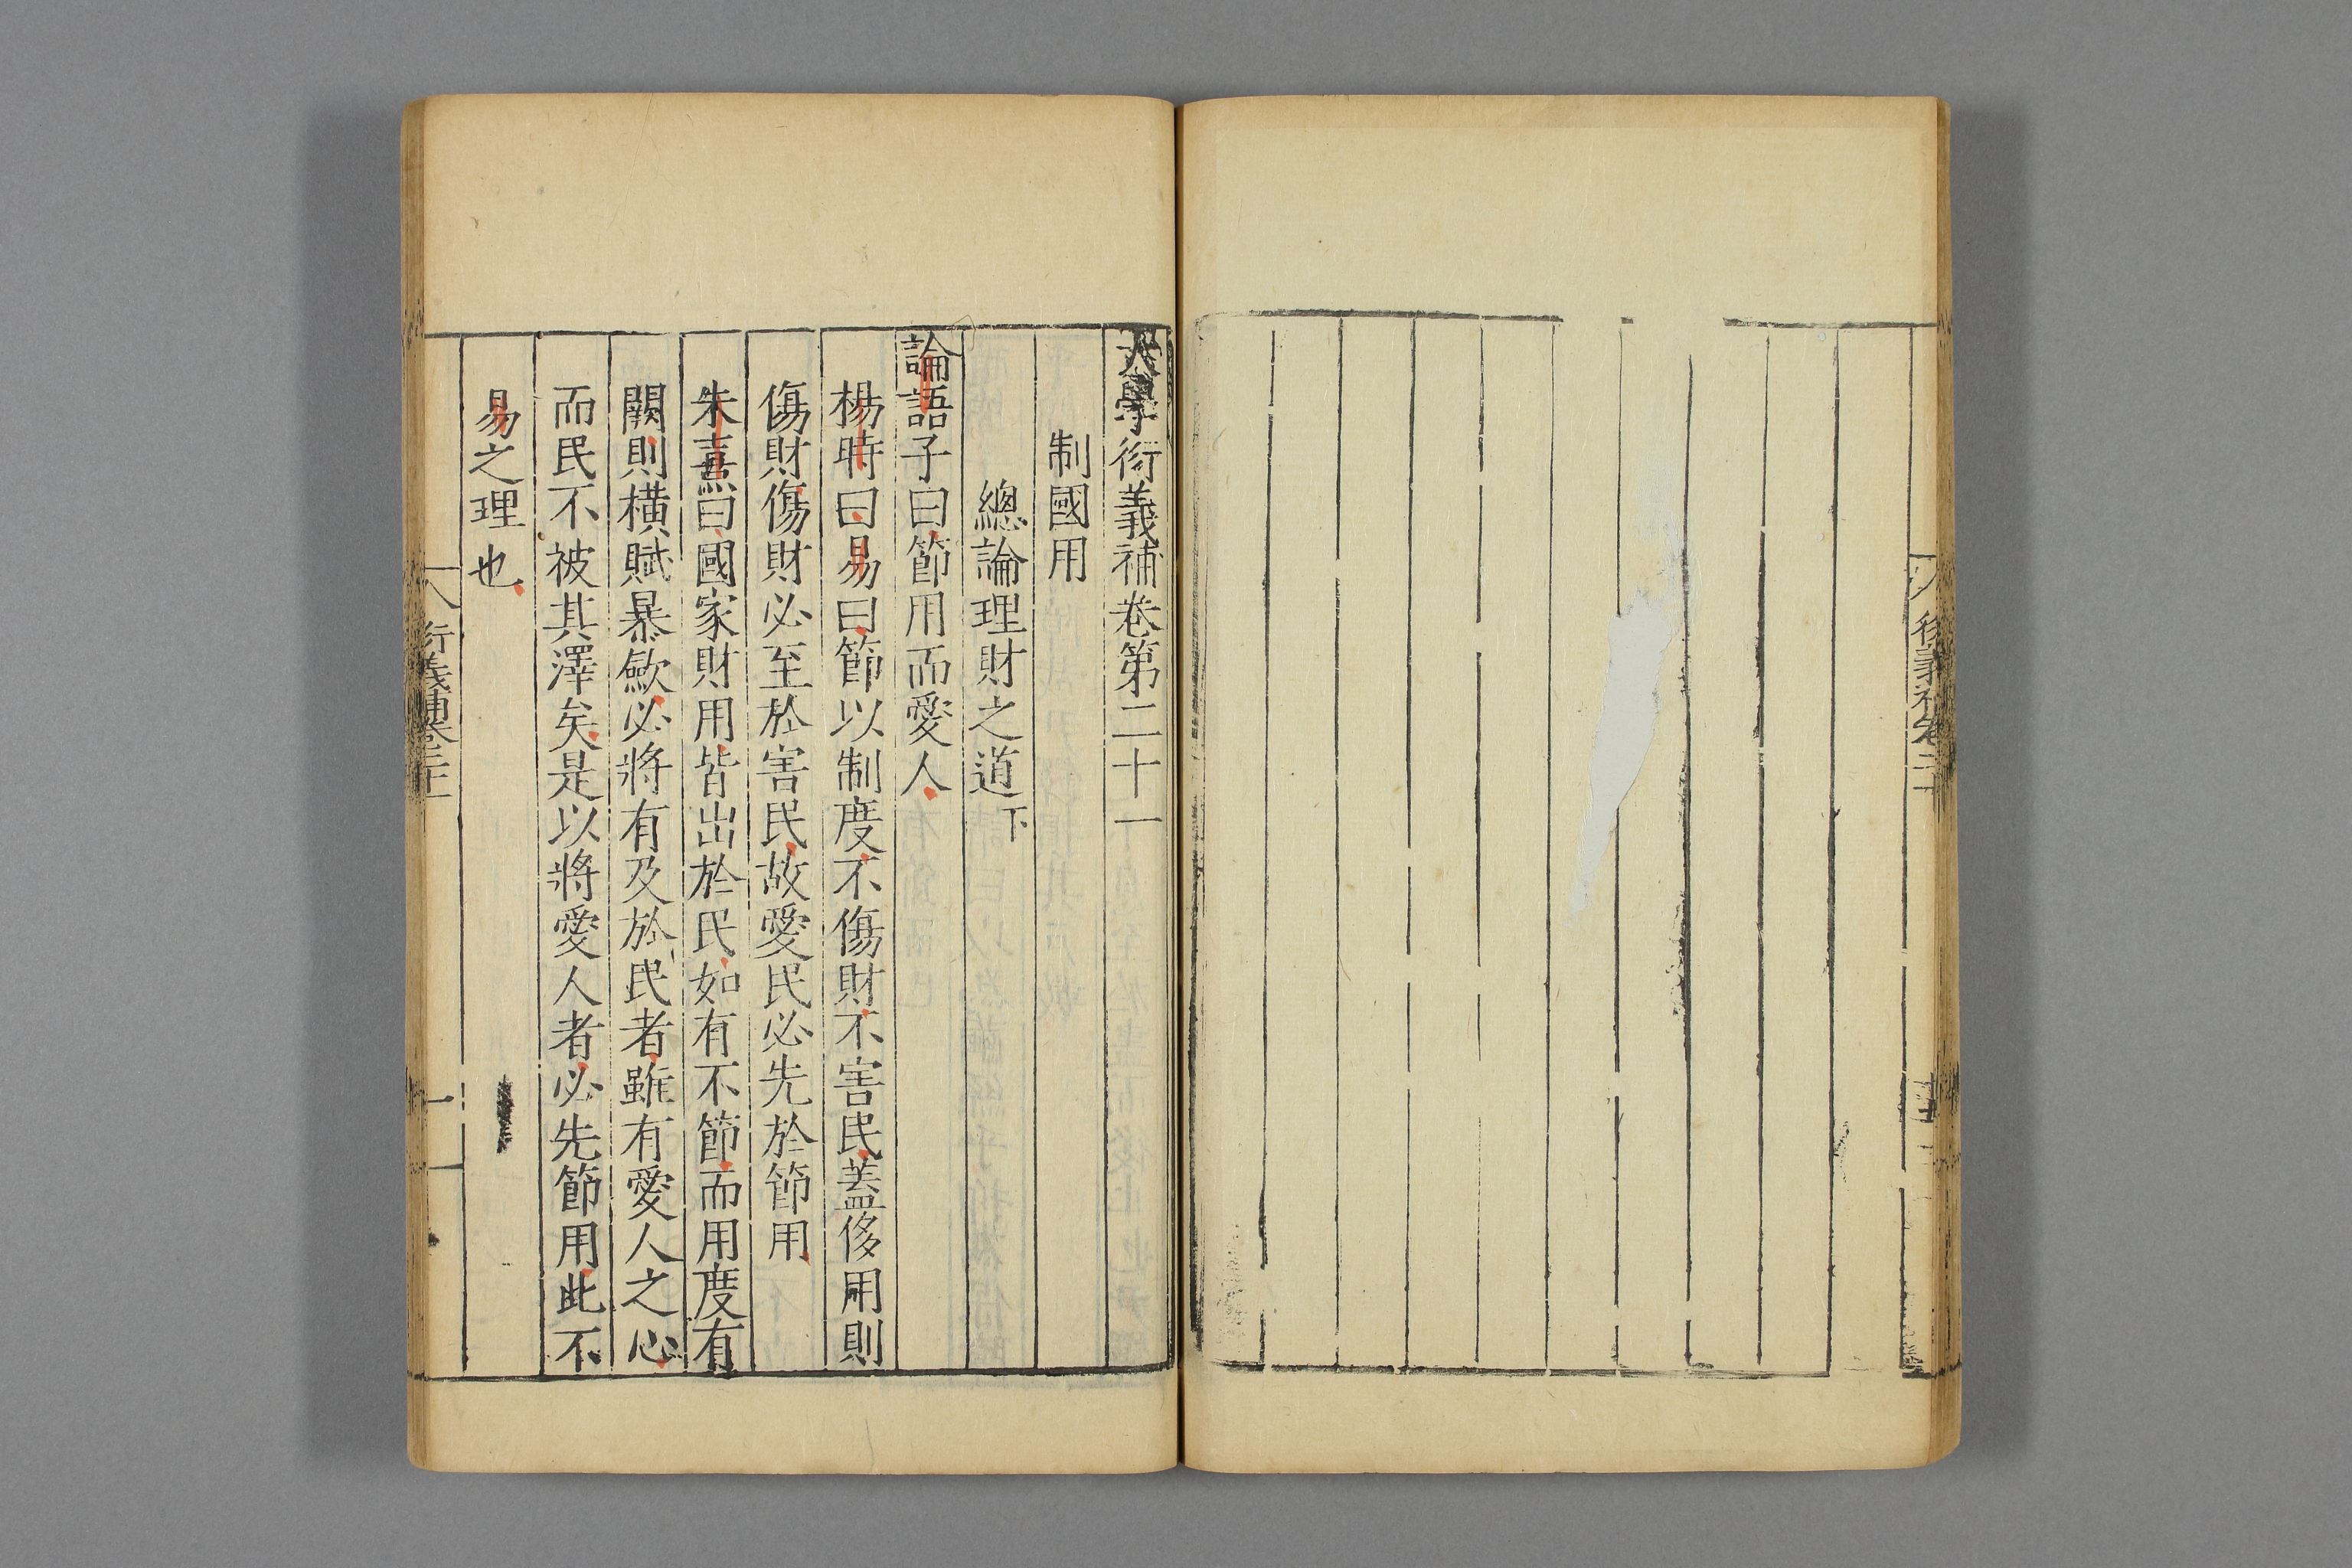 衍義補卷二十
大學衍義補卷第二十一
制國用
總論理財之道下
論語子曰節用而愛人
楊時曰易曰節以制度不傷財不害民蓋侈用則
傷財傷財必至於害民故愛民必先於節用
朱熹曰國家財用皆出於民如有不節而用度有
闕則橫賦暴歛必將有及於民者雖有愛人之心
而民不被其澤矣是以將愛人者必先節用此不
易之理也
衍義補卷二十一
一